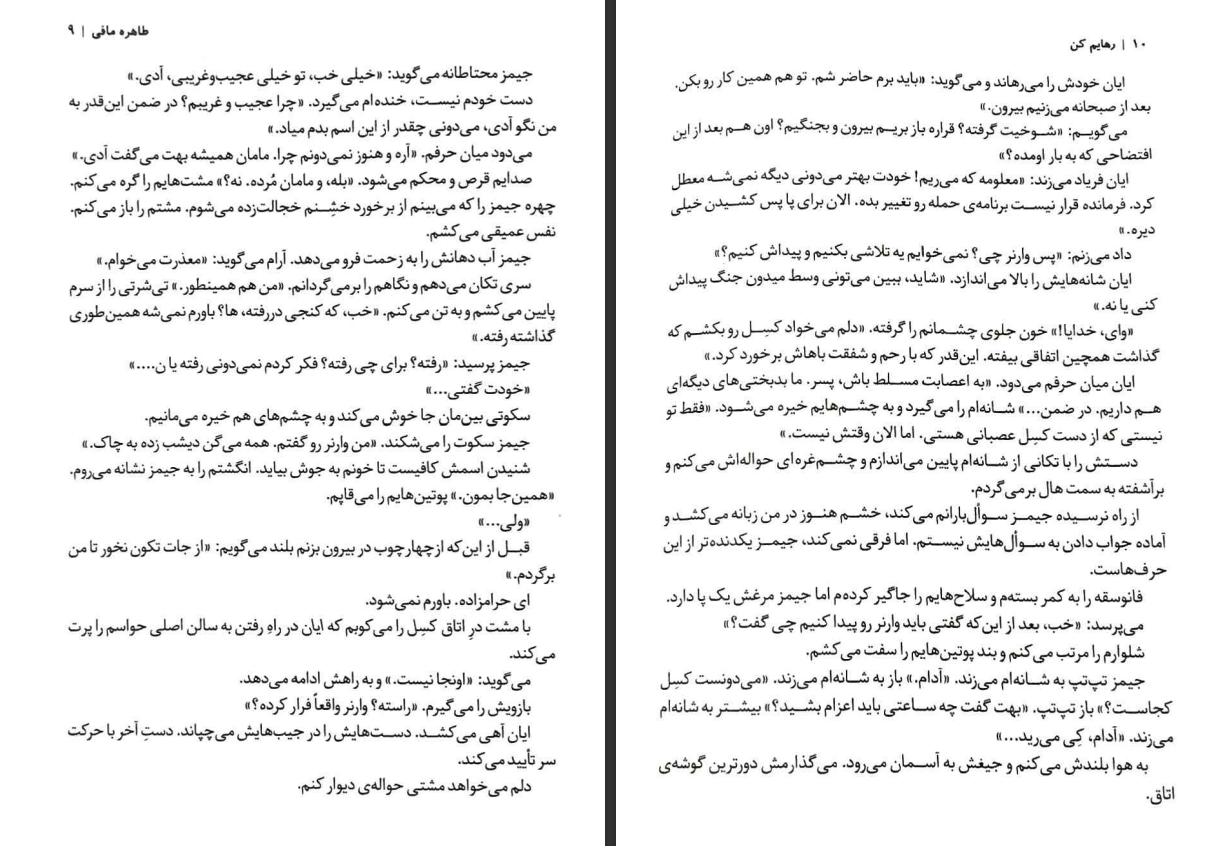 طاهره مافی | ۹
جیمز محتاطانه می‌گوید: «خیلی خب، تو خیلی عجیب‌وغریبی، آدی.»
دست خودم نیست، خنده‌ام می‌گیرد. «چرا عجیب و غریبم؟ در ضمن این‌قدر به
من نگو آدی، می‌دونی چقدر از این اسم بدم میاد.»
می‌دود میان حرفم. «آره و هنوز نمی‌دونم چرا. مامان همیشه بهت می‌گفت آدی.»
صدایم قرص و محکم می‌شود. «بله، و مامان مُرده. نه؟» مشت‌هایم را گره می‌کنم.
چهره جیمز را که می‌بینم از برخورد خشِنم خجالت‌زده می‌شوم. مشتم را باز می‌کنم.
نفس عمیقی می‌کشم.
جیمز آب دهانش را به زحمت فرو می‌دهد. آرام می‌گوید: «معذرت می‌خوام.»
سری تکان می‌دهم و نگاهم را برمی‌گردانم. «من هم همینطور.» تی‌شرتی را از سرم
پایین می‌کشم و به تن می‌کنم. «خب، که کنجی دررفته، ها؟ باورم نمی‌شه همین‌طوری
گذاشته رفته.»
جیمز پرسید: «رفته؟ برای چی رفته؟ فکر کردم نمی‌دونی رفته یا ن....»
«خودت گفتی...»
سکوتی بین‌مان جا خوش می‌کند و به چشم‌های هم خیره می‌مانیم.
جیمز سکوت را می‌شکند. «من وارنر رو گفتم. همه می‌گن دیشب زده به چاک.»
شنیدن اسمش کافیست تا خونم به جوش بیاید. انگشتم را به جیمز نشانه می‌روم.
«همین‌جا بمون.» پوتین‌هایم را می‌قاپم.
«ولی...»
قبل از این‌که از‌چهارچوب در بیرون بزنم بلند می‌گویم: «از جات تکون نخور تا من
برگردم.»
ای حرامزاده. باورم نمی‌شود.
با مشت درِ اتاق کسِل را می‌کوبم که ایان در راهِ رفتن به سالن اصلی حواسم را پرت
می‌کند.
می‌گوید: «اونجا نیست.» و به راهش ادامه می‌دهد.
بازویش را می‌گیرم. «راسته؟ وارنر واقعاً فرار کرده؟»
ایان آهی می‌کشد. دست‌هایش را در جیب‌هایش می‌چپاند. دستِ آخر با حرکت
سر تأیید می‌کند.
دلم می‌خواهد مشتی حواله‌ی دیوار کنم.
۱۰ | رهایم کن
ایان خودش را می‌رهاند و می‌گوید: «باید برم حاضر شم. تو هم همین کار رو بکن.
بعد از صبحانه می‌زنیم بیرون.»
می‌گویم: «شوخیت گرفته؟ قراره باز بریم بیرون و بجنگیم؟ اون هم بعد از این
افتضاحی که به بار اومده؟»
ایان فریاد می‌زند: «معلومه که می‌ریم! خودت بهتر می‌دونی دیگه نمی‌شه معطل
کرد. فرمانده قرار نیست برنامه‌ی حمله رو تغییر بده. الان برای پا پس کشیدن خیلی
دیره.»
داد می‌زنم: «پس وارنر چی؟ نمی‌خوایم یه تلاشی بکنیم و پیداش کنیم؟»
ایان شانه‌هایش را بالا می‌اندازد. «شاید، ببین می‌تونی وسط میدون جنگ پیداش
کنی یا نه.»
«وای، خدایا!» خون جلوی چشمانم را گرفته. «دلم می‌خواد کسِل رو بکشم که
گذاشت همچین اتفاقی بیفته. این‌قدر که با رحم و شفقت باهاش برخورد کرد.»
ایان میان حرفم می‌دود. «به اعصابت مسلط باش، پسر. ما بدبختی‌های دیگه‌ای
هم داریم. در ضمن...» شانه‌ام را می‌گیرد و به چشم‌هایم خیره می‌شود. «فقط تو
نیستی که از دست کسِل عصبانی هستی. اما الان وقتش نیست.»
دستش را با تکانی از شانه‌ام پایین می‌اندازم و چشم‌غره‌ای حواله‌اش می‌کنم و
برآشفته به سمت هال برمی‌گردم.
از راه نرسیده جیمز سوأل‌بارانم می‌کند، خشم هنوز در من زبانه می‌کشد و
آماده جواب دادن به سوأل‌هایش نیستم. اما فرقی نمی‌کند، جیمز یکدنده‌تر از این
حرف‌هاست.
فانوسقه را به کمر بسته‌م و سلاح‌هایم را جاگیر کرده‌م اما جیمز مرغش یک پا دارد.
می‌پرسد: «خب، بعد از این‌که گفتی باید وارنر رو پیدا کنیم چی گفت؟»
شلوارم را مرتب می‌کنم و بند پوتین‌هایم را سفت می‌کشم.
جیمز تپ‌تپ به شانه‌ام می‌زند. «آدام.» باز به شانه‌ام می‌زند. «می‌دونست کسِل
کجاست؟» باز تپ‌تپ. «بهت گفت چه ساعتی باید اعزام بشید؟» بیشتر به شانه‌ام
می‌زند. «آدام، کِی می‌رید...»
به هوا بلندش می‌کنم و جیغش به آسمان می‌رود. می‌گذارمش دورترین گوشه‌ی
اتاق.